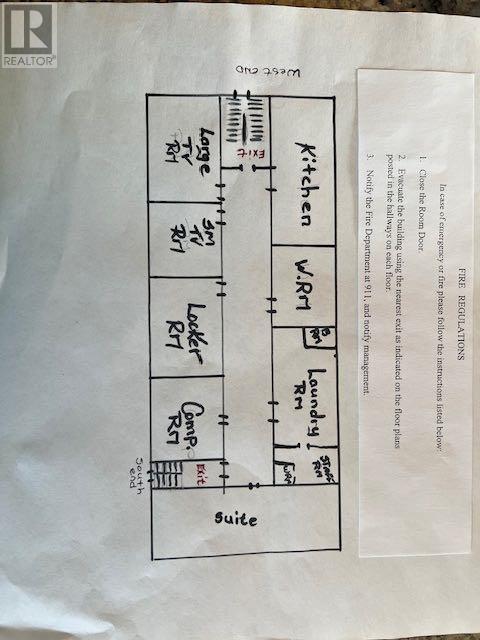 REALTOR®
FIRE REGULATIONS
In case of emergency or fire please follow the instructions listed below:
1. Close the Room Door.
2. Evacuate the building using the nearest exit as indicated on the floor plans
posted in the hallways on each floor.
3. Notify the Fire Department at 911, and notify management.
West END
EXIT
Kitchen
W.RM
B
RM
Laundry
RM
STAFF
RM
W/RM
Large
TV
RM
SM
TV
RM
Locker
RM
Comp.
RM
Exit
South
end
Suite